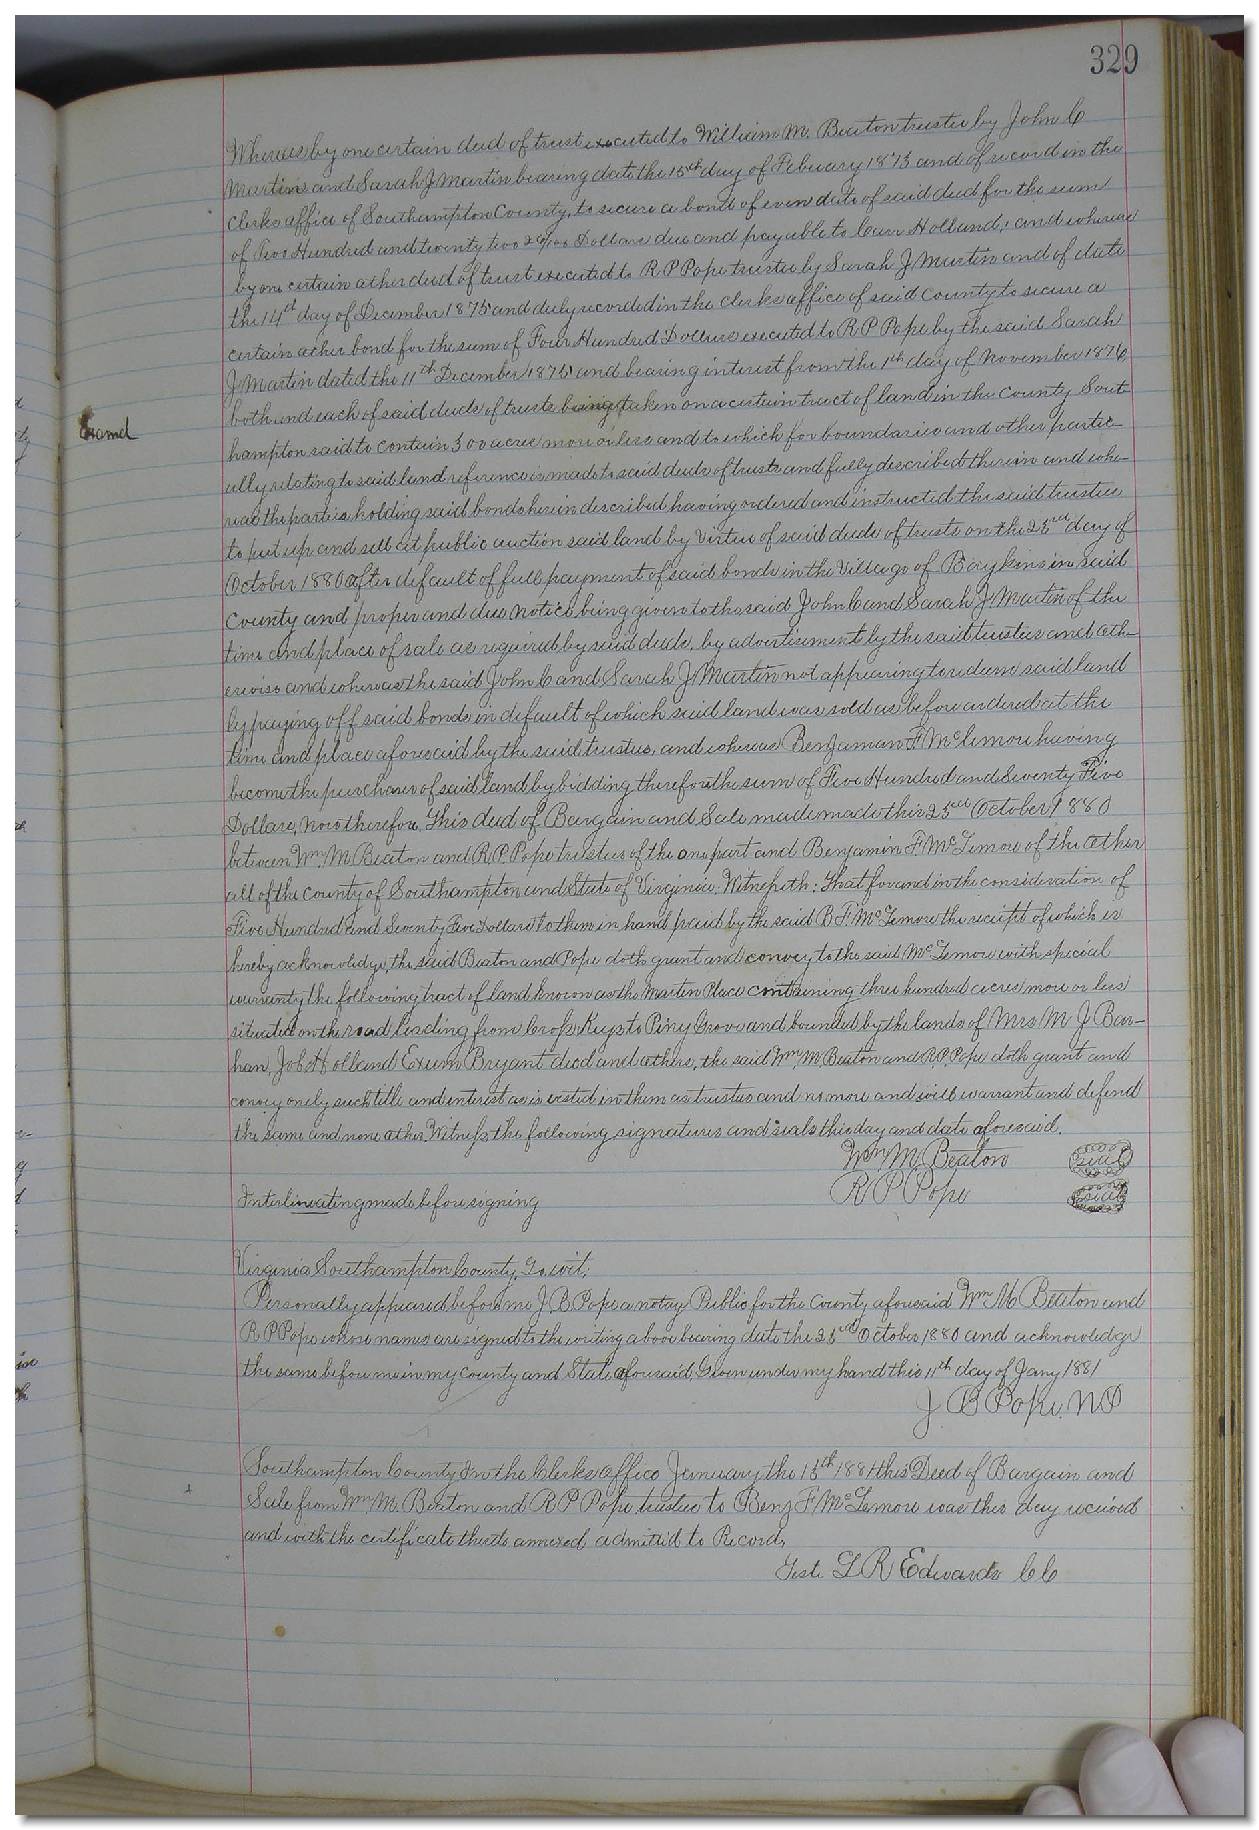 329
Whereas by one certain deed of trust executed to William M. Beaton trustee by John C
Martin and Sarah J Martin bearing date the 15th day of Febuary 1875 and of record in the
clerks office of Southampton County, to secure a bond of even date of said deed for the sum
of Two Hundred and twenty two Dollars due and payable to Carr Holland; and whereas
by one certain other deed of trust executed to R P Pope trustee by Sarah J Martin and of date
the 14th day of December 1875 and duly recorded in the clerks office of said County to secure a
certain other bond for the sum of Four Hundred Dollars executed to R P Pope by the said Sarah
J Martin dated the 11th December 1875 and bearing interest from the 1st day of November 1876
both and each of said deeds of trusts being taken on a certain tract of land in the County Sout-
Examd
hampton said to contain 300 acres more or less and to which for boundaries and other partic-
ully relating to said land reference is made to said deeds of trusts and fully described therein and whe-
reas the parties holding said bonds herein described having ordered and instructed the said trustees
to put up and sell at public auction said land by Virtue of said deeds of trusts on the 25rd day of
October 1880 after default of full payment of said bonds in the Village of Boykins in said
County and proper and due notice being given to the said John C and Sarah J Martin of the
time and place of sale as required by said deeds, by advertisement by the said trustees and oth-
erwise and whereas the said John C and Sarah J Martin not appearing to redeem said land
by paying off said bonds in default of which said land was sold as before ordered at the
time and place aforesaid by the said trustees, and whereas Benjaman F McLemore having
become the purchaser of said land by bidding therefore the sum of Five Hundred and Seventy Five
Dollars, Now therefore, This deed of Bargain and Sale made made this 25rd October 1880
between Wm M Beaton and R. P. Pope trustees of the one part and Benjamin F. McLemore of the other
all of the county of Southampton and State of Virginia. Witnesseth: That for and in the consideration of
Five Hundred and Seventy Five Dollars to them in hand paid by the said B. F. McLemore the receipt of which is
hereby acknowledge, the said Beaton and Pope doth grant and convey to the said McLemore with special
warranty the following tract of land known as the Martin Place containing three hundred acres more or less
situated on the road leading from Cross Keys to Piny Grove and bounded by the lands of Mrs M J Bar-
han, Job Holland Exum Bryant decd and others, the said Wm M Beaton and R. P. Pope doth grant and
convey only such title and interest as is vested in them as trustees and no more and will warrant and defend
the same and none other Witness the following signatures and seals this day and date aforesaid.
Wm M. Beaton seal
R P Pope seal
Interlineating made before signing
Virginia Southampton County, To wit;
Personally appeared before me J B Pope a notay Public for the County aforesaid Wm M Beaton and
R P Pope whose names are signed to the writing above bearing date the 25rd October 1880 and acknowledge
the same before me in my County and State aforesaid, Given under my hand this 11th day of Jany 1881
J. B Pope. N P
Southampton County In the Clerks office January the 15th 1881 this Deed of Bargain and
Sale from Wm M. Beaton and R P Pope trustees to Benj F McLemore was this day received
and with the certificate thereto annexed admitted to Record,
Teste L R Edwards CC